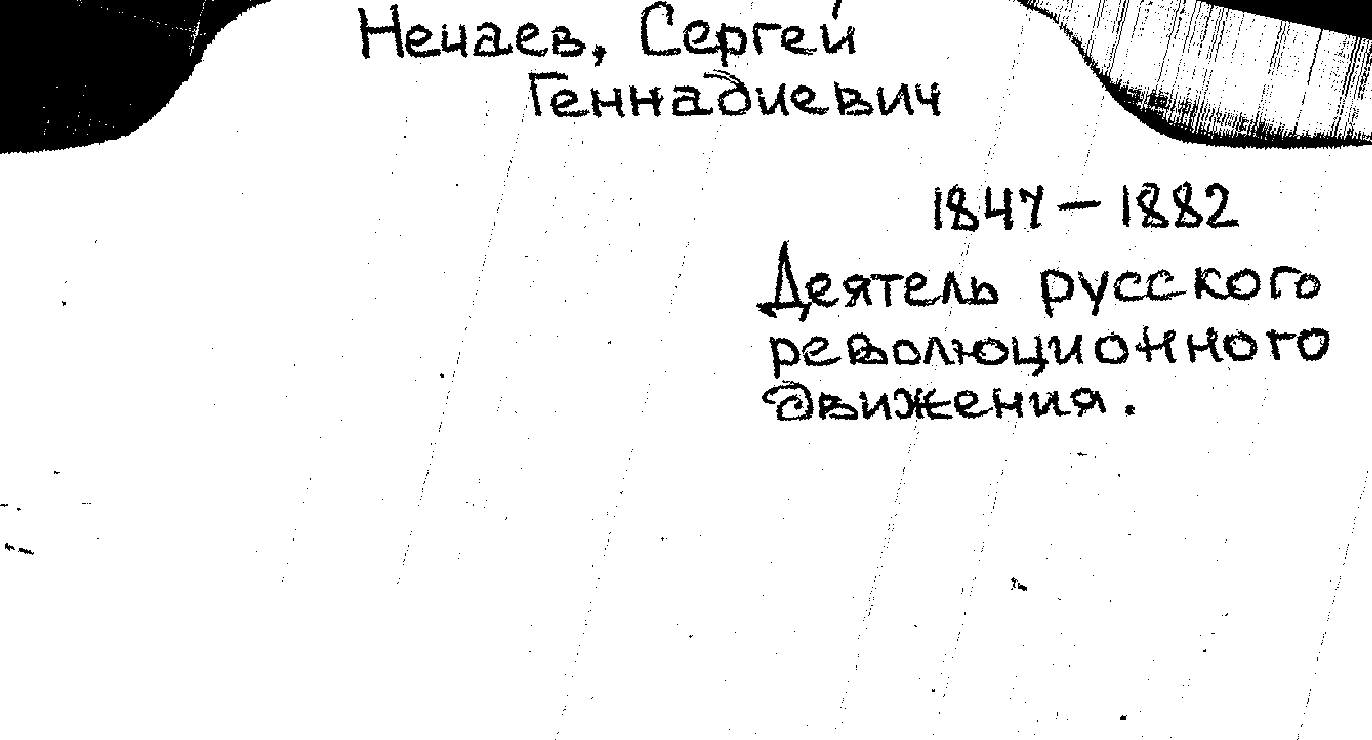 Нечаев, Сергей
Геннадиевич
1847 – 1882
Деятель русского
революционного
движения.